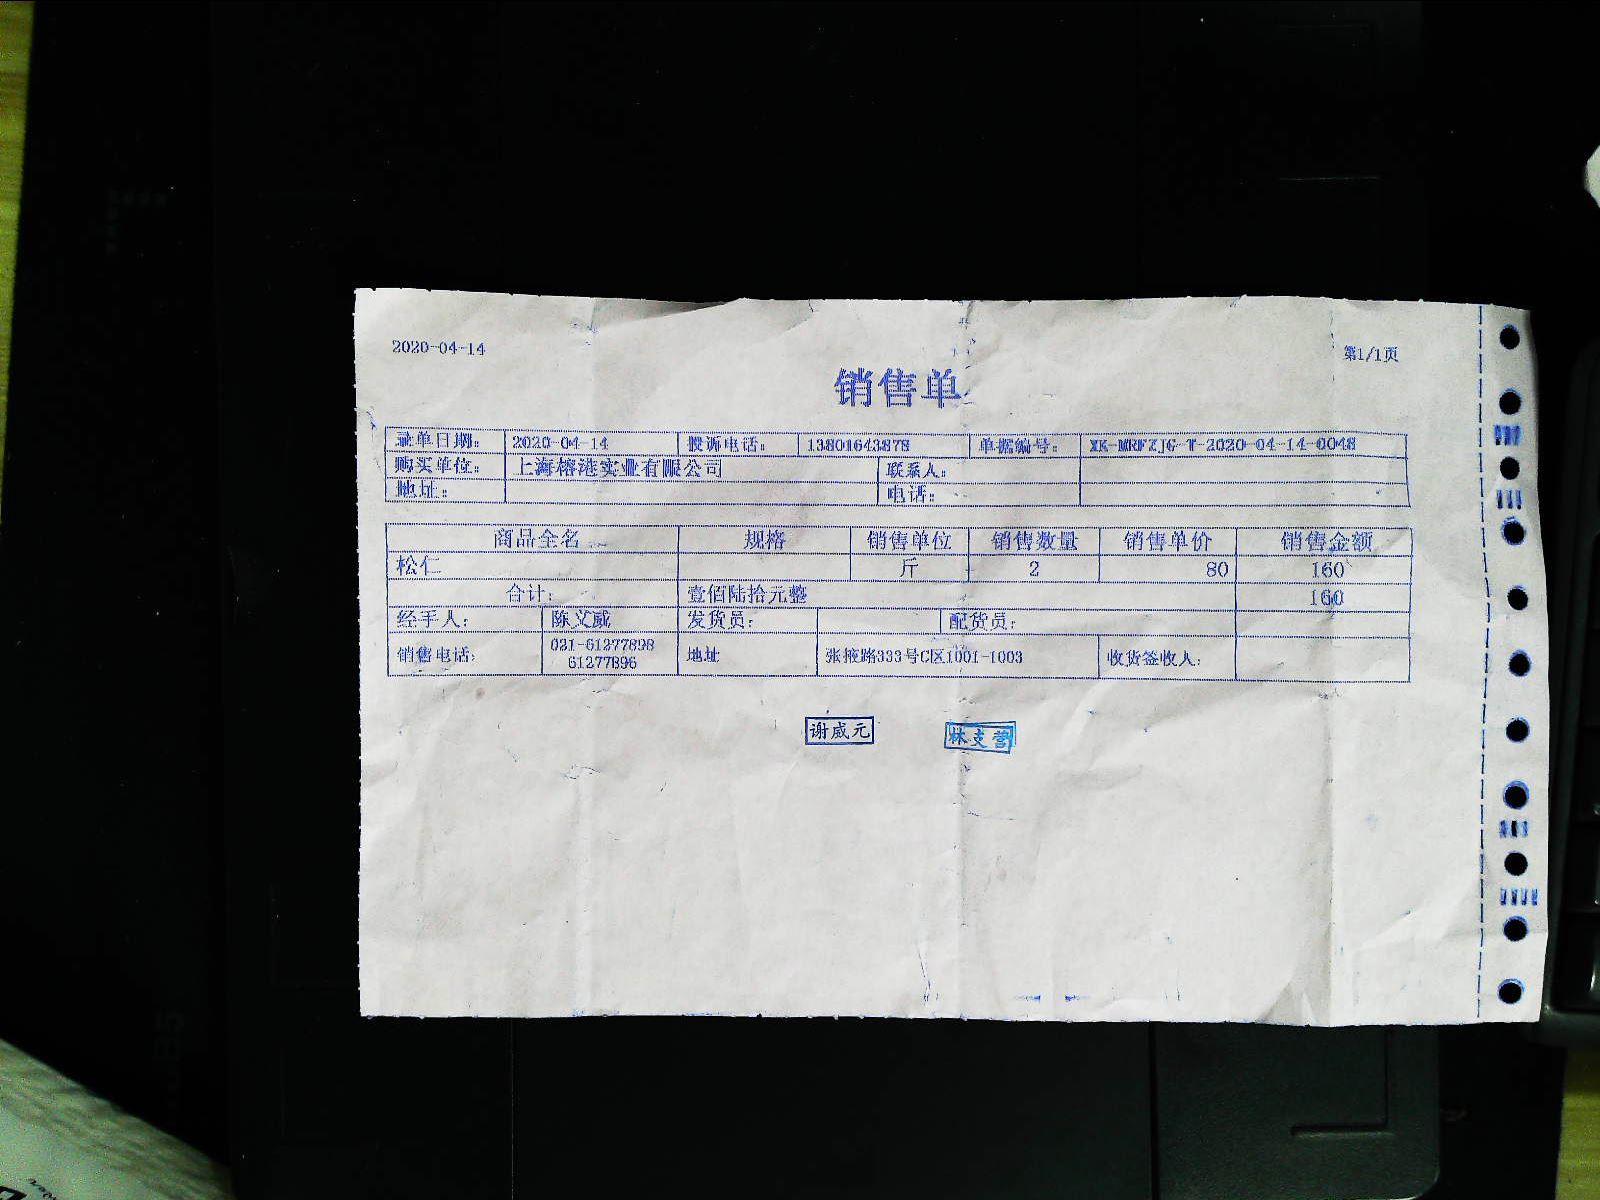 2020-04-14 第1/1页
销售单
录单日期: 2020-04-14 投诉电话: 13801643878 单据编号: XK-MRFZJG-T-2020-04-14-0048
购买单位: 上海榕港实业有限公司 联系人:
地址: 电话:
商品全名 规格 销售单位 销售数量 销售单价 销售金额
松仁 斤 2 80 160
合计: 壹佰陆拾元整 160
经手人: 陈义威 发货员: 配货员:
销售电话: 021-61277898 61277896 地址 张掖路333号C区1001-1003 收货签收人:
谢威元 林支营